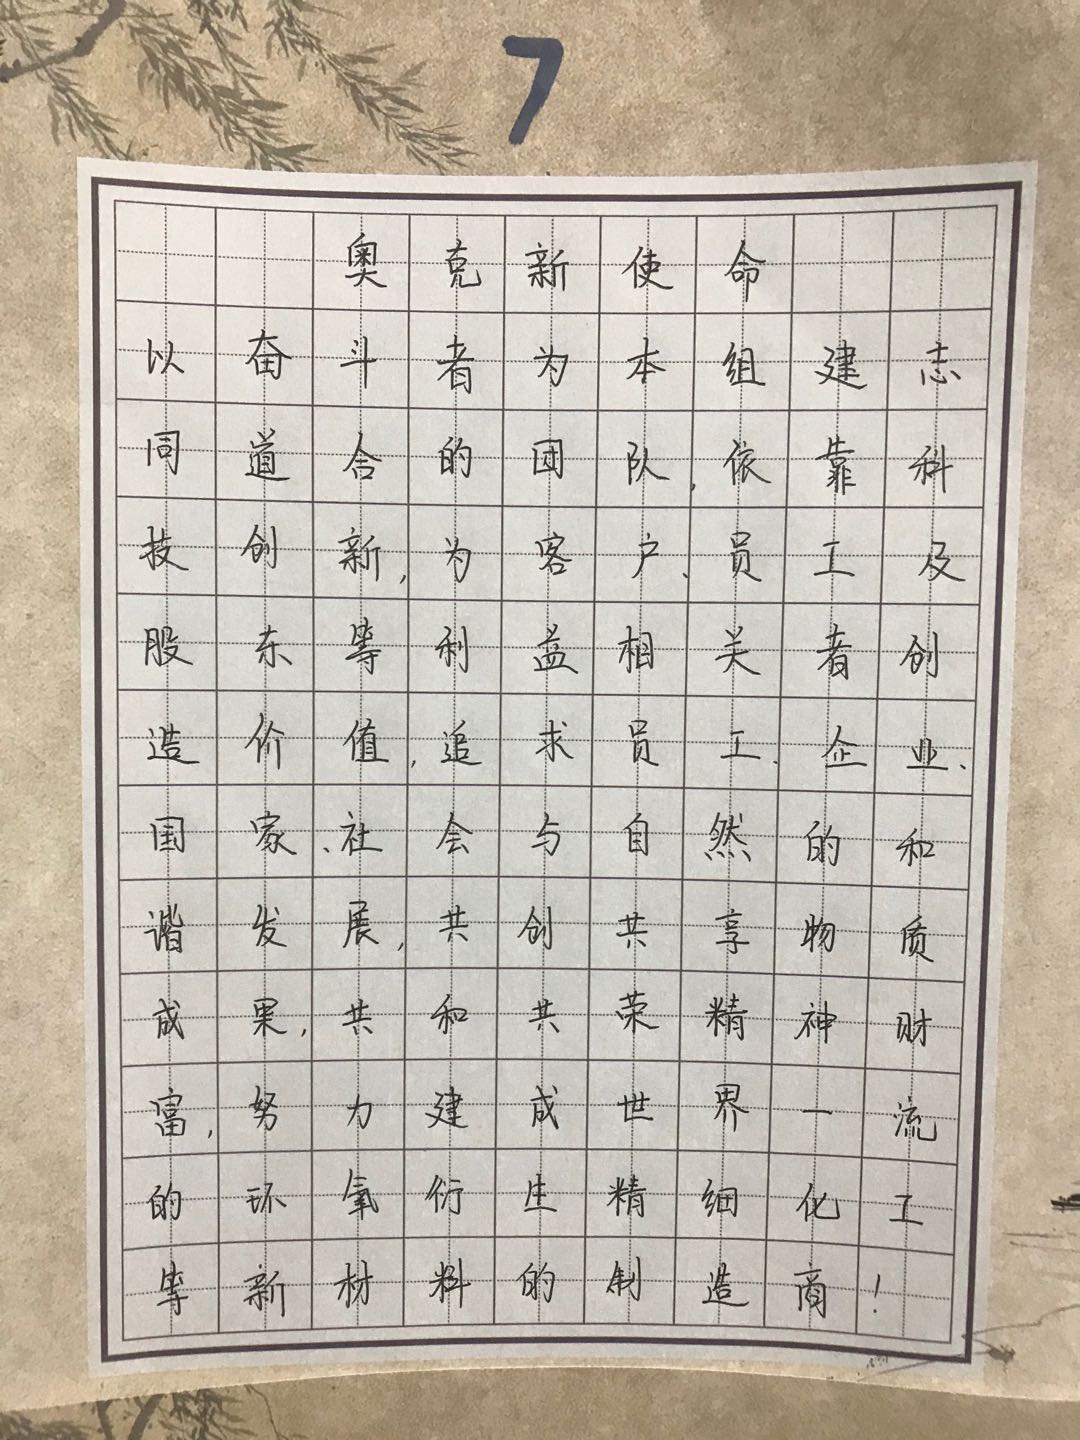 7
奥克新使命
以奋斗者为本组建志
同道合的团队,依靠科
技创新,为客户、员工及
股东等利益相关者创
造价值,追求员工、企业、
国家、社会与自然的和
谐发展,共创共享物质
成果,共和共荣精神财
富,努力建成世界一流
的环氧衍生精细化工
等新材料的制造商!